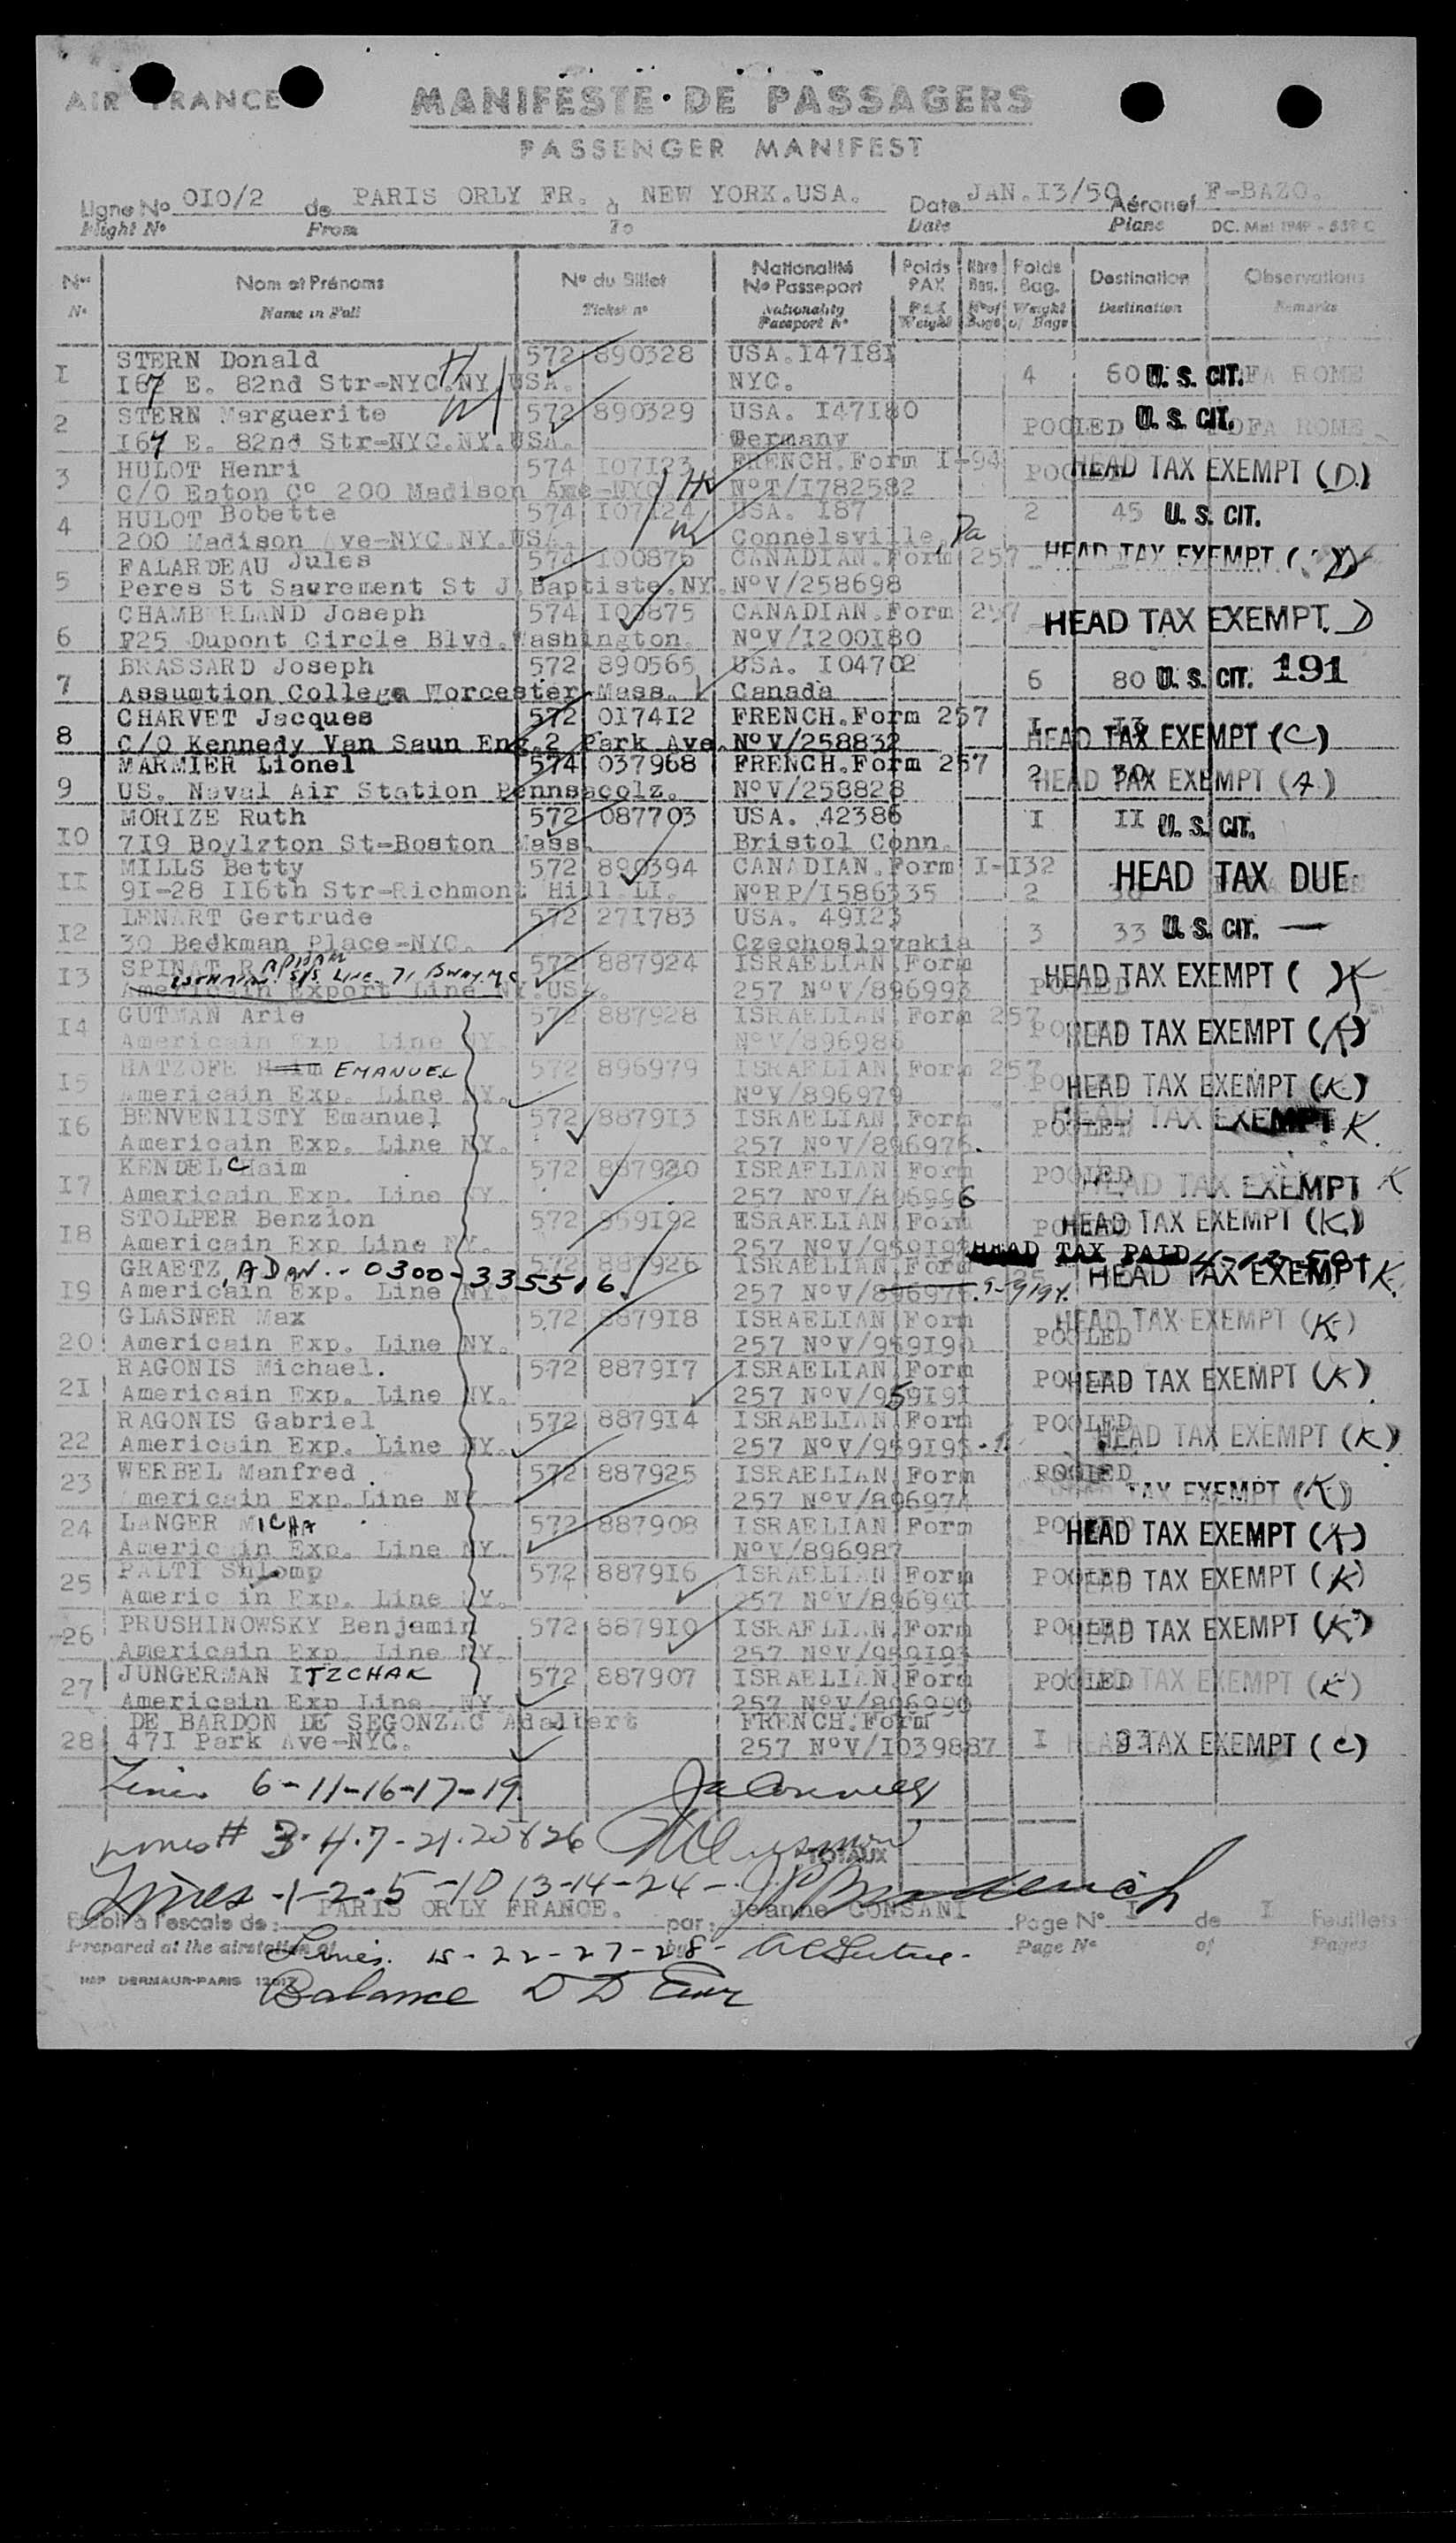 AIR FRANCE
MANIFESTE DE PASSAGERS
PASSENGER MANIFEST
Ligne No OIO/2 de PARIS ORLY FR. à NEW YORK.USA. Date JAN.I3/50 Aéronef F-BAZO.
Flight No From To Date Plane DC. Mai 1949 - 537 C
Nos Nom et Prénoms No du Billet Nationalité No Passeport Poids PAX Nbre Bag. Poids Bag. Destination Observations
No Name in Full Ticket no Nationality Passport No PAX Weight No of Bags Weight of Bags Destination Remarks
I STERN Donald 572 890328 USA.I47I8I
I67 E. 82nd Str-NYC.NY.USA. NYC. 4 60 U. S. CIT. ROME
2 STERN Marguerite 572 890329 USA. I47I80
I67 E. 82nd Str-NYC.NY.USA. Germany POOLED U. S. CIT. ROME
3 HULOT Henri 574 I07I23 FRENCH.Form I-94
C/O Eaton Co 200 Madison Ame-NYC NoT/I782582 POOLED HEAD TAX EXEMPT (D.)
4 HULOT Bobette 574 I07I24 USA. I87 2 45 U. S. CIT.
200 Madison Ave-NYC.NY.USA. Connelsville, Pa
5 FALARDEAU Jules 574 I00876 CANADIAN.Form 257 HEAD TAX EXEMPT ( D
Peres St Sacrement St J.Baptiste.NY. NoV/258698
CHAMBERLAND Joseph 574 I00875 CANADIAN.Form 257
6 F25 Dupont Circle Blvd.Washington. NoV/I200I80 HEAD TAX EXEMPT. D
BRASSARD Joseph 572 890565 USA. I04702
7 Assumtion College Worcester Mass. Canada 6 80 U. S. CIT. 191
CHARVET Jacques 572 0I74I2 FRENCH.Form 257
8 C/O Kennedy Van Saun Eng.2 Park Ave. NoV/258832 I I3 HEAD TAX EXEMPT (C)
MARMIER Lionel 574 037968 FRENCH.Form 257
9 US. Naval Air Station Pennsacolz. NoV/258828 2 30 HEAD TAX EXEMPT (A.)
MORIZE Ruth 572 087703 USA. 42386
IO 7I9 Boylzton St-Boston Mass. Bristol Conn. I II U. S. CIT.
MILLS Betty 572 890394 CANADIAN.Form I-I32
II 9I-28 II6th Str-Richmont Hill.LI. NoRP/I586335 2 30 HEAD TAX DUE
LENART Gertrude 572 27I783 USA. 49I23
I2 30 Bedkman Place-NYC. Czechoslovakia 3 33 U. S. CIT. —
I3 SPINAT RAPHAEL 572 887924 ISRAELIAN Form
S/S LINE. 71 BWAY. N.Y.
Americain Export Line NY.USA. 257 NoV/896993 POOLED HEAD TAX EXEMPT ( ) K
I4 GUTMAN Arie 572 887928 ISRAELIAN Form 257
Americain Exp. Line NY. NoV/896986 POOLED HEAD TAX EXEMPT (K)
HATZOFE Haim EMANUEL 572 896979 ISRAELIAN Form 257
I5 Americain Exp. Line NY. NoV/896979 POOLED HEAD TAX EXEMPT (K)
I6 BENVENIISTY Emanuel 572 8879I3 ISRAELIAN Form
Americain Exp. Line NY. 257 NoV/896976. POOLED HEAD TAX EXEMPT K.
I7 KENDEL Chaim 572 887920 ISRAELIAN Form
Americain Exp. Line NY. 257 NoV/896996 POOLED HEAD TAX EXEMPT K
I8 STOLPER Benzion 572 959I92 ISRAELIAN Form
Americain Exp Line NY. 257 NoV/959I92 POOLED HEAD TAX EXEMPT (K)
HEAD TAX PAID 4-12-50
GRAETZ, ADAN.-0300-335516. 572 887926 ISRAELIAN Form
I9 Americain Exp. Line NY. 257 NoV/896975. HEAD TAX EXEMPT K.
GLASNER Max 572 8879I8 ISRAELIAN Form
20 Americain Exp. Line NY. 257 NoV/959I90 POOLED HEAD TAX EXEMPT (K)
RAGONIS Michael. 572 8879I7 ISRAELIAN Form
2I Americain Exp. Line NY. 257 NoV/959I9I POOLED HEAD TAX EXEMPT (K)
RAGONIS Gabriel 572 8879I4 ISRAELIAN Form
22 Americain Exp. Line NY. 257 NoV/959I95 POOLED HEAD TAX EXEMPT (K)
23 WERBEL Manfred 572 887925 ISRAELIAN Form
Americain Exp.Line NY 257 NoV/896974 POOLED TAX EXEMPT (K)
24 LANGER MICHA 572 887908 ISRAELIAN Form
Americain Exp. Line NY. NoV/896987 POOLED HEAD TAX EXEMPT (K)
25 PALTI Shlomp 572 8879I6 ISRAELIAN Form
Americain Exp. Line NY. 257 POOLED HEAD TAX EXEMPT (K)
26 PRUSHINOWSKY Benjamin 572 8879I0 ISRAELIAN Form
Americain Exp. Line NY. 257 NoV/959I93 POOLED HEAD TAX EXEMPT (K)
27 JUNGERMAN ITZCHAK 572 887907 ISRAELIAN Form
Americain Exp Line NY. 257 NoV/896990 POOLED HEAD TAX EXEMPT (K)
DE BARDON DE SEGONZAC Adalbert FRENCH.Form
28 47I Park Ave-NYC. 257 NoV/I039887 I HEAD TAX EXEMPT (C)
Lines 6-11-16-17-19.
Lines # 3.4.7-21.25 & 26
TOTAUX
Lines -1-2-5-10 13-14-24-
Etabli à l'escale de: PARIS ORLY FRANCE. par: Jeanne CONSANI Page No I de I Feuillets
Prepared at the airstation of by Page No of Pages
Lines. 15-22-27-28-
IMP DERMAUR-PARIS
Balance